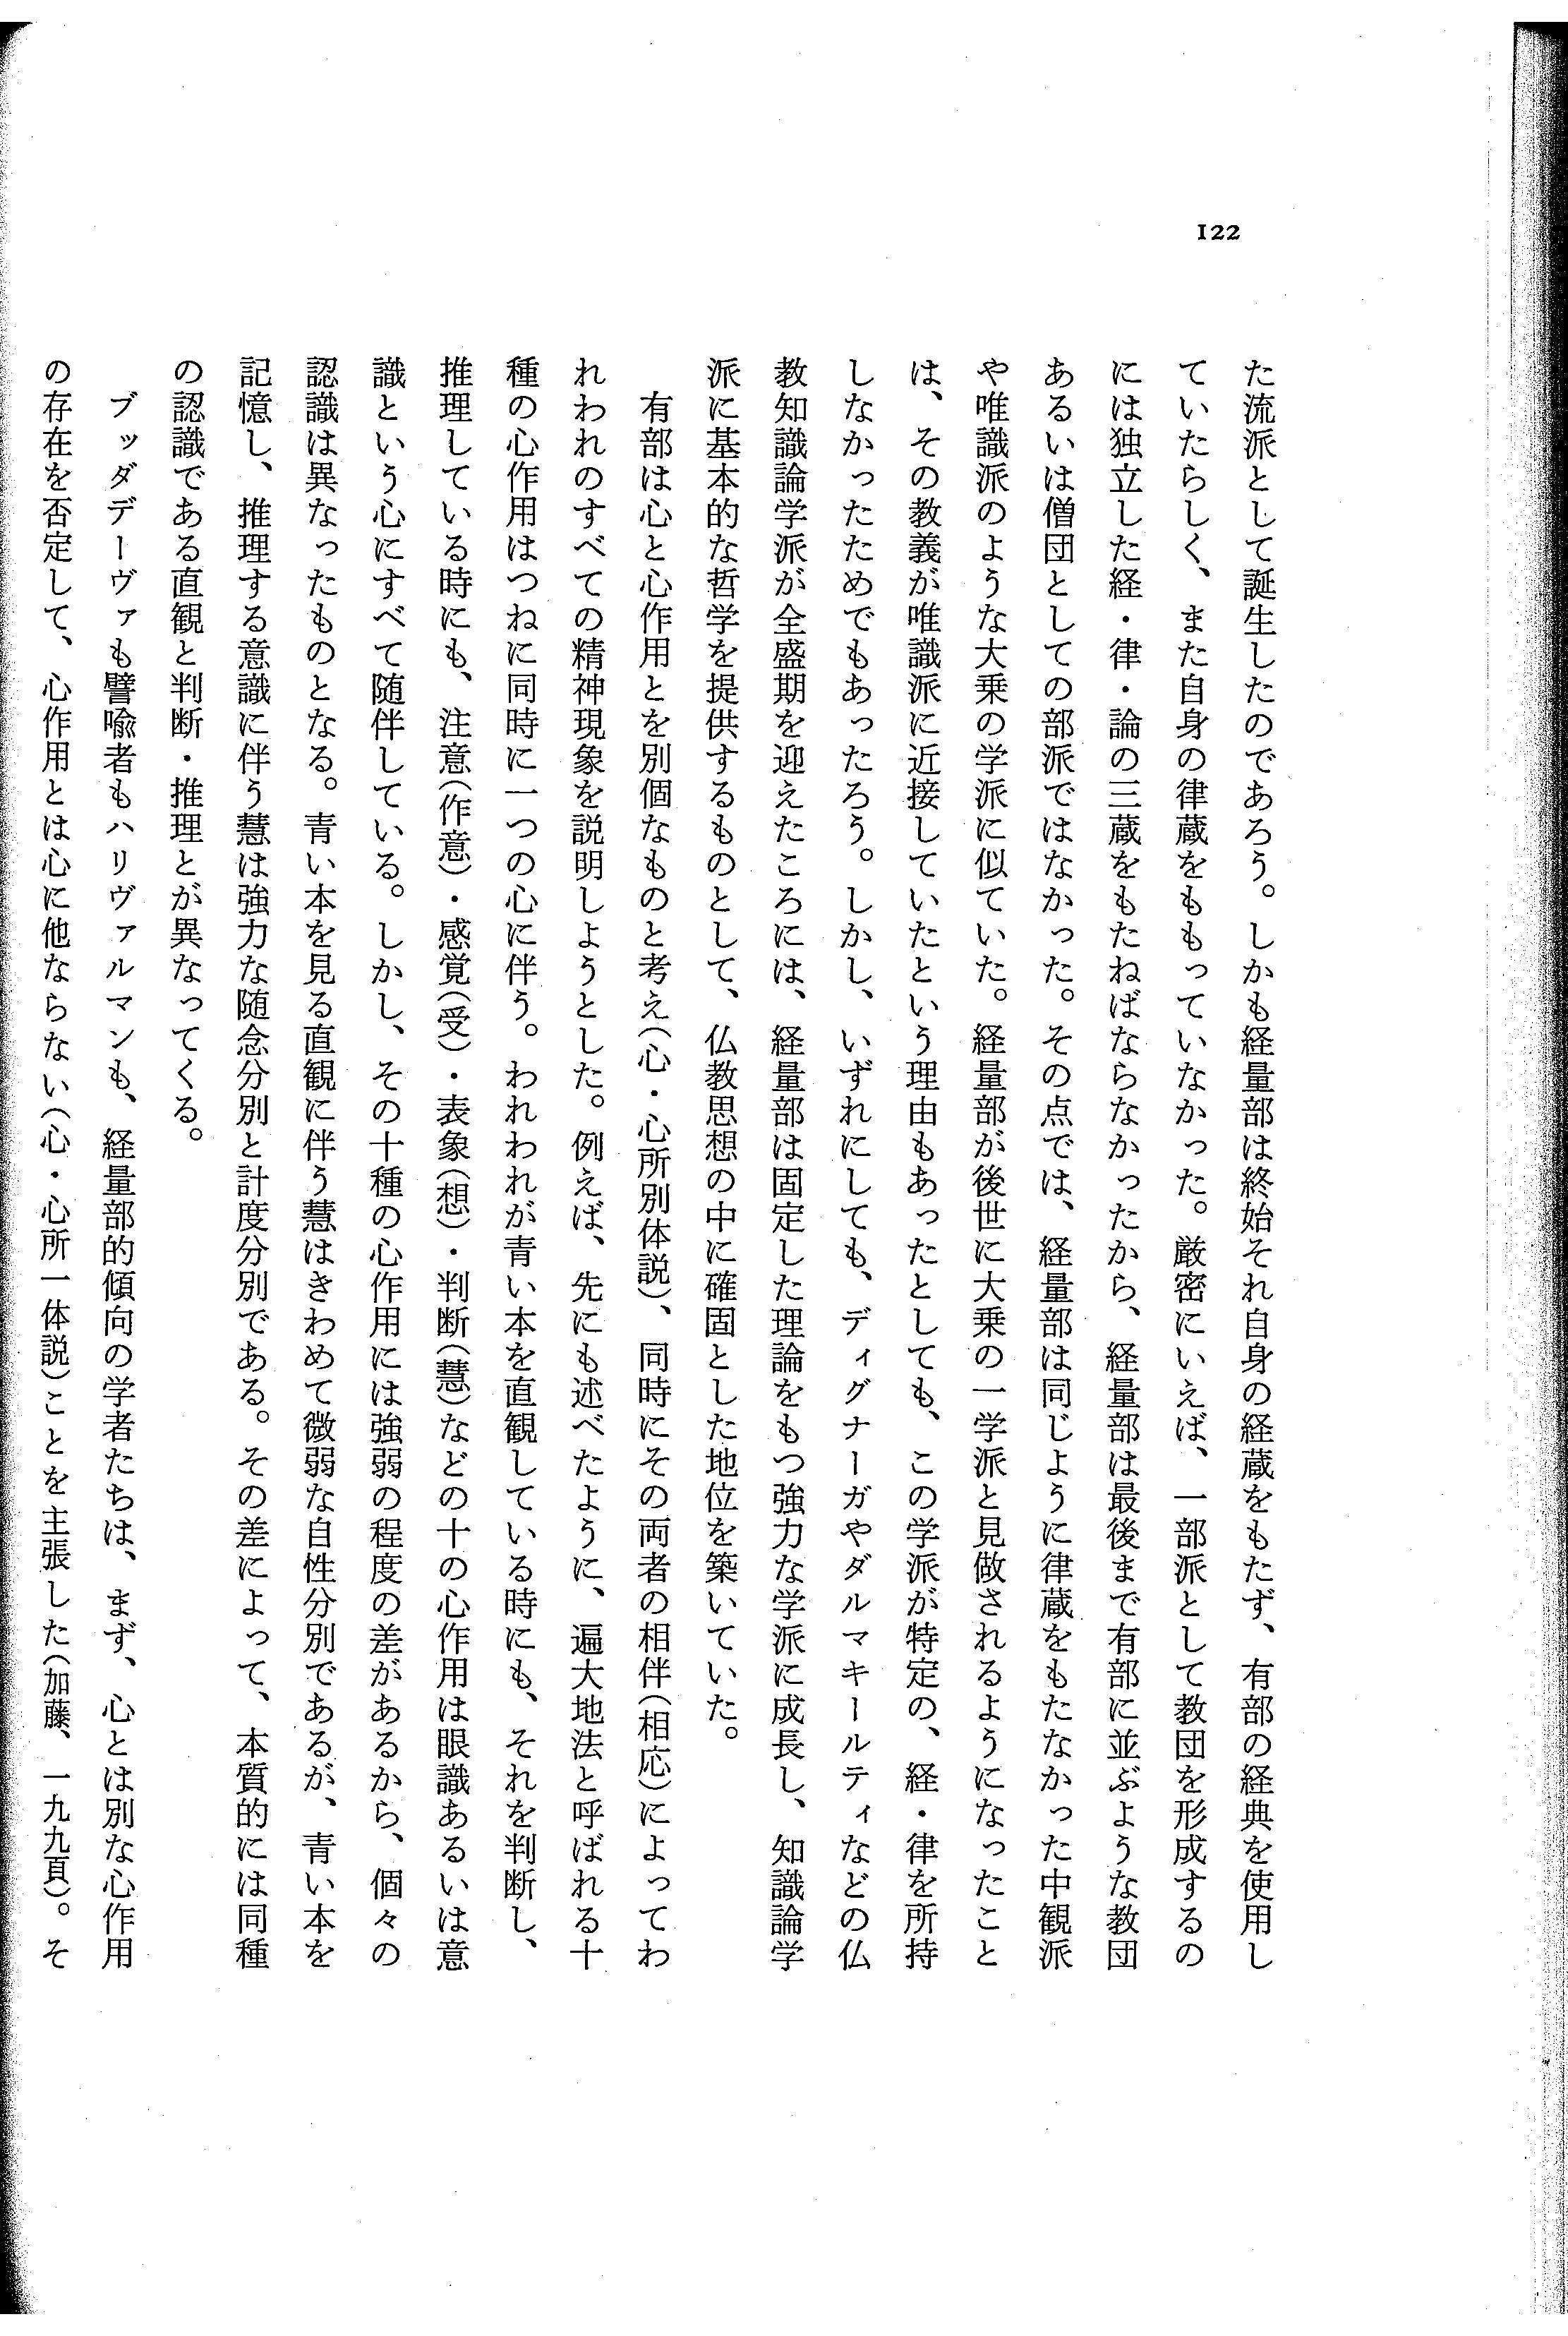 122
た流派として誕生したのであろう。しかも経量部は終始それ自身の経蔵をもたず、有部の経典を使用し
ていたらしく、また自身の律蔵をももっていなかった。厳密にいえば、一部派として教団を形成するの
には独立した経・律・論の三蔵をもたねばならなかったから、経量部は最後まで有部に並ぶような教団
あるいは僧団としての部派ではなかった。その点では、経量部は同じように律蔵をもたなかった中観派
や唯識派のような大乗の学派に似ていた。経量部が後世に大乗の一学派と見做されるようになったこと
は、その教義が唯識派に近接していたという理由もあったとしても、この学派が特定の、経・律を所持
しなかったためでもあったろう。しかし、いずれにしても、ディグナーガやダルマキールティなどの仏
教知識論学派が全盛期を迎えたころには、経量部は固定した理論をもつ強力な学派に成長し、知識論学
派に基本的な哲学を提供するものとして、仏教思想の中に確固とした地位を築いていた。
有部は心と心作用とを別個なものと考え(心・心所別体説)、同時にその両者の相伴(相応)によってわ
れわれのすべての精神現象を説明しようとした。例えば、先にも述べたように、遍大地法と呼ばれる十
種の心作用はつねに同時に一つの心に伴う。われわれが青い本を直観している時にも、それを判断し、
推理している時にも、注意(作意)・感覚(受)・表象(想)・判断(慧)などの十の心作用は眼識あるいは意
識という心にすべて随伴している。しかし、その十種の心作用には強弱の程度の差があるから、個々の
認識は異なったものとなる。青い本を見る直観に伴う慧はきわめて微弱な自性分別であるが、青い本を
記憶し、推理する意識に伴う慧は強力な随念分別と計度分別である。その差によって、本質的には同種
の認識である直観と判断・推理とが異なってくる。
ブッダデーヴァも譬喩者もハリヴァルマンも、経量部的傾向の学者たちは、まず、心とは別な心作用
の存在を否定して、心作用とは心に他ならない(心・心所一体説)ことを主張した(加藤、一九九頁)。そ